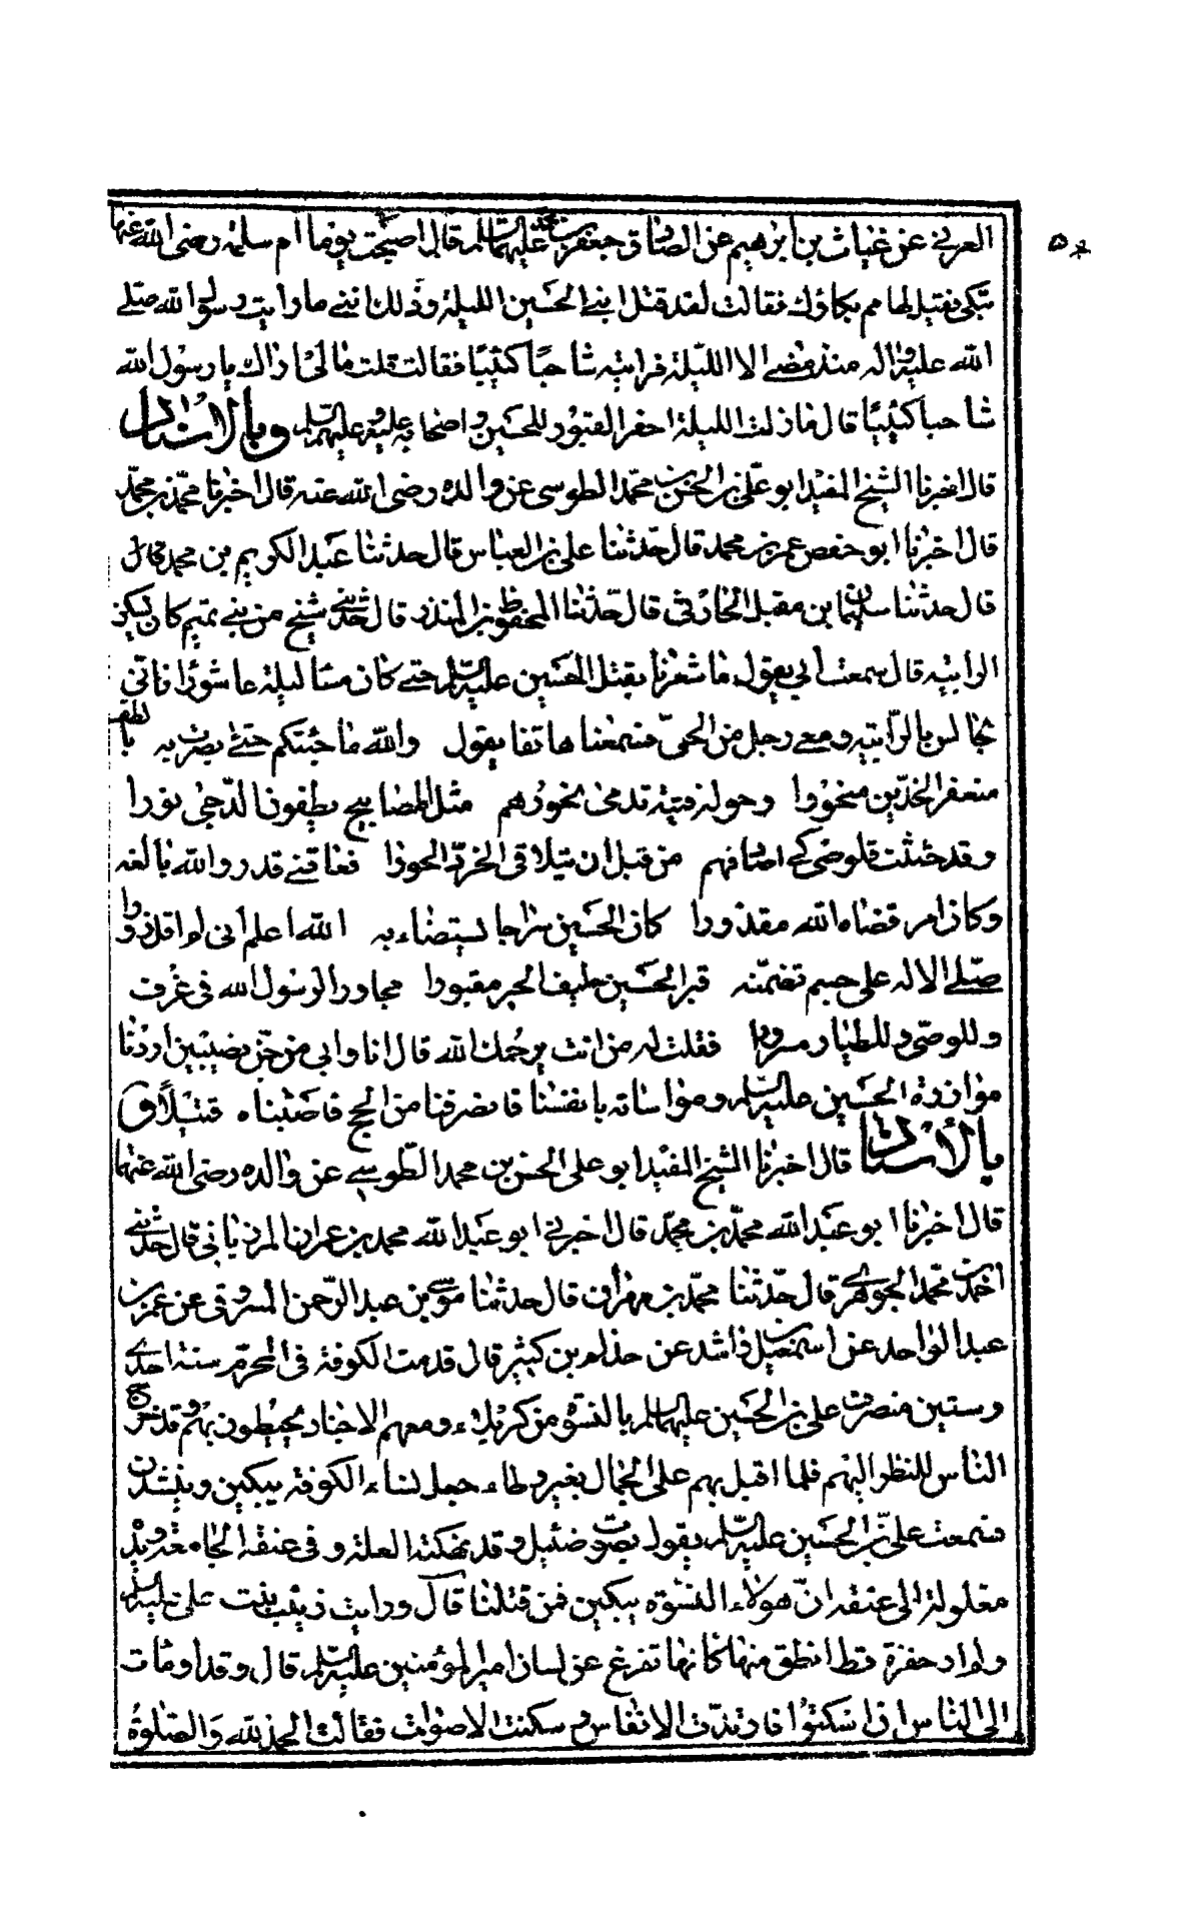 العرني عن غياث بن ابرهيم عن الصادق جعفر بن محمد عليهما السلم قال اصبحت يوما ام سلمة رضى الله عنها
تبكى فقيل لها مم بكاؤك فقالت لقد قتل ابنے الحسين الليلة وذلك اننے ما رايت رسول الله صلے
الله عليه واله منذ مضے الا الليلة فرايته شاحبا كئيبا فقالت قلت مالى اراك يا رسول الله
شاحبا كئيبا قال ما زلت الليلة احفر القبور للحسين واصحابه عليه وعليهم السلم وبالاسناد
قال اخبرنا الشيخ المفيد ابو على بن الحسن بن محمد الطوسى عن والده رضى الله عنه قال اخبرنا محمد بن محمد
قال اخبرنا ابو حفص عمر بن محمد قال حدثنا على بن العباس قال حدثنا عبد الكريم بن محمد قال
قال حدثنا سليمان بن مقبل الحارثى قال حدثنا المحفوظ بن المنذر قال حدثنے شيخ من بنے تميم كان يسكن
الرابيه قال سمعت ابي يقول ما شعرنا بقتل الحسين عليه السلم حتے كان مسا ليلة عاشورا فانى
جالس بالرابيه ومعے رجل من الحى فسمعنا هاتفا يقول والله ما جئتكم حتے بصرت به بالطف
منعفر الخدين منحورا وحوله فتية تدمى نحورهم مثل المصابيح يطفون الدجى نورا
وقد حثثت قلوصى كے اصادفهم من قبل ان يتلاقى الخرد الحورا فعاقنے قدر والله بالغه
وكان امر قضاه الله مقدورا كان الحسين سراجا يستضاء به الله اعلم انى لم اقل زورا
صلے الاله على جسم تضمنه قبر الحسين حليف الخير مقبورا مجاورا لرسول الله فى غرف
وللوصى وللطيار مسرورا فقلت له من انت يرحمك الله قال انا وابى من جن نصيبين اردنا
موازرة الحسين عليه السلم ومواساته بانفسنا فانصرفنا من الحج فاصبناه قتيلا و
بالاسناد قال اخبرنا الشيخ المفيد ابو على الحسن بن محمد الطوسے عن والده رضى الله عنهما
قال اخبرنا ابو عبد الله محمد بن محمد قال اخبرنے ابو عبد الله محمد بن عمران المرزبانى قال حدثنے
احمد بن محمد الجوهرے قال حدثنا محمد بن مهران قال حدثنا موسے بن عبد الرحمن المسروقى عن عمر بن
عبد الواحد عن اسمعيل بن راشد عن حذلم بن كثير قال قدمت الكوفة فى المحرم سنة احدے
وستين منصرف على بن الحسين عليهما السلم بالنسوة من كربلاء ومعهم الاجناد يحيطون بهم وقد خرج
الناس للنظر اليهم فلما اقبل بهم على الجمال بغير وطاء جعل نساء الكوفة يبكين وينشدن
فسمعت على بن الحسين عليه السلم يقول بصوت ضئيل وقد نهكته العلة وفى عنقه الجامعة ويده
مغلولة الى عنقه ان هولاء النسوة يبكين فمن قتلنا قال ورايت زينب بنت على عليه السلم
ولم ار خفرة قط انطق منها كانها تفرغ عن لسان امير المؤمنين عليه السلم قال وقد اومات
الى الناس ان اسكتوا فارتدت الانفاس وسكنت الاصوات فقالت الحمد لله والصلوة